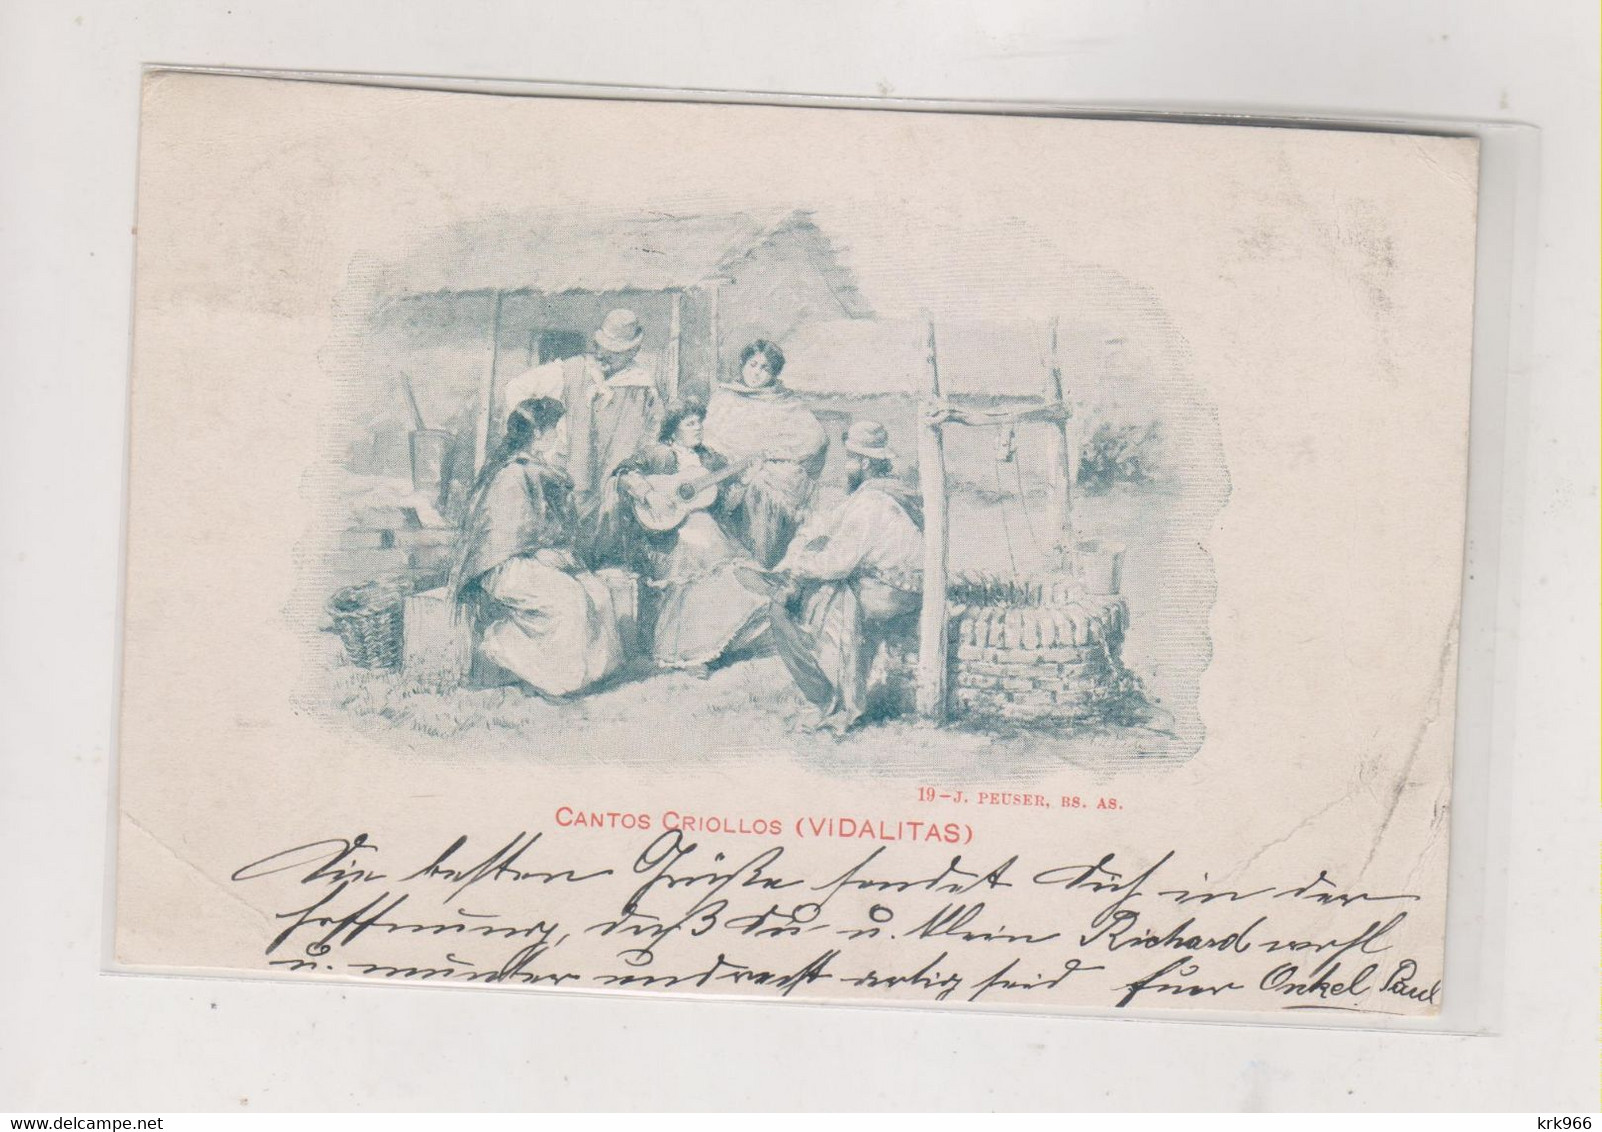 19–J. PEUSER, BS. AS.
CANTOS CRIOLLOS (VIDALITAS)
Die besten Grüße sendet Dich in der
Hoffnung, daß Du u. klein Richard wohl
u. munter und recht artig seid Euer Onkel Paul
delcampe.net
krk966